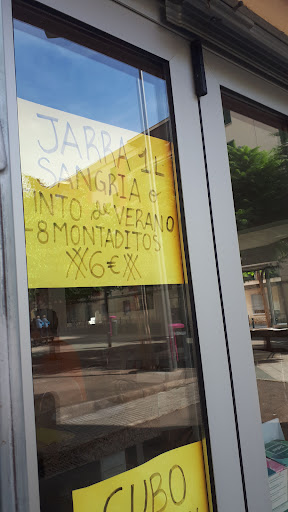 JARRA 1L
SANGRIA o
INTO de VERANO
+8 MONTADITOS
6€
CUBO